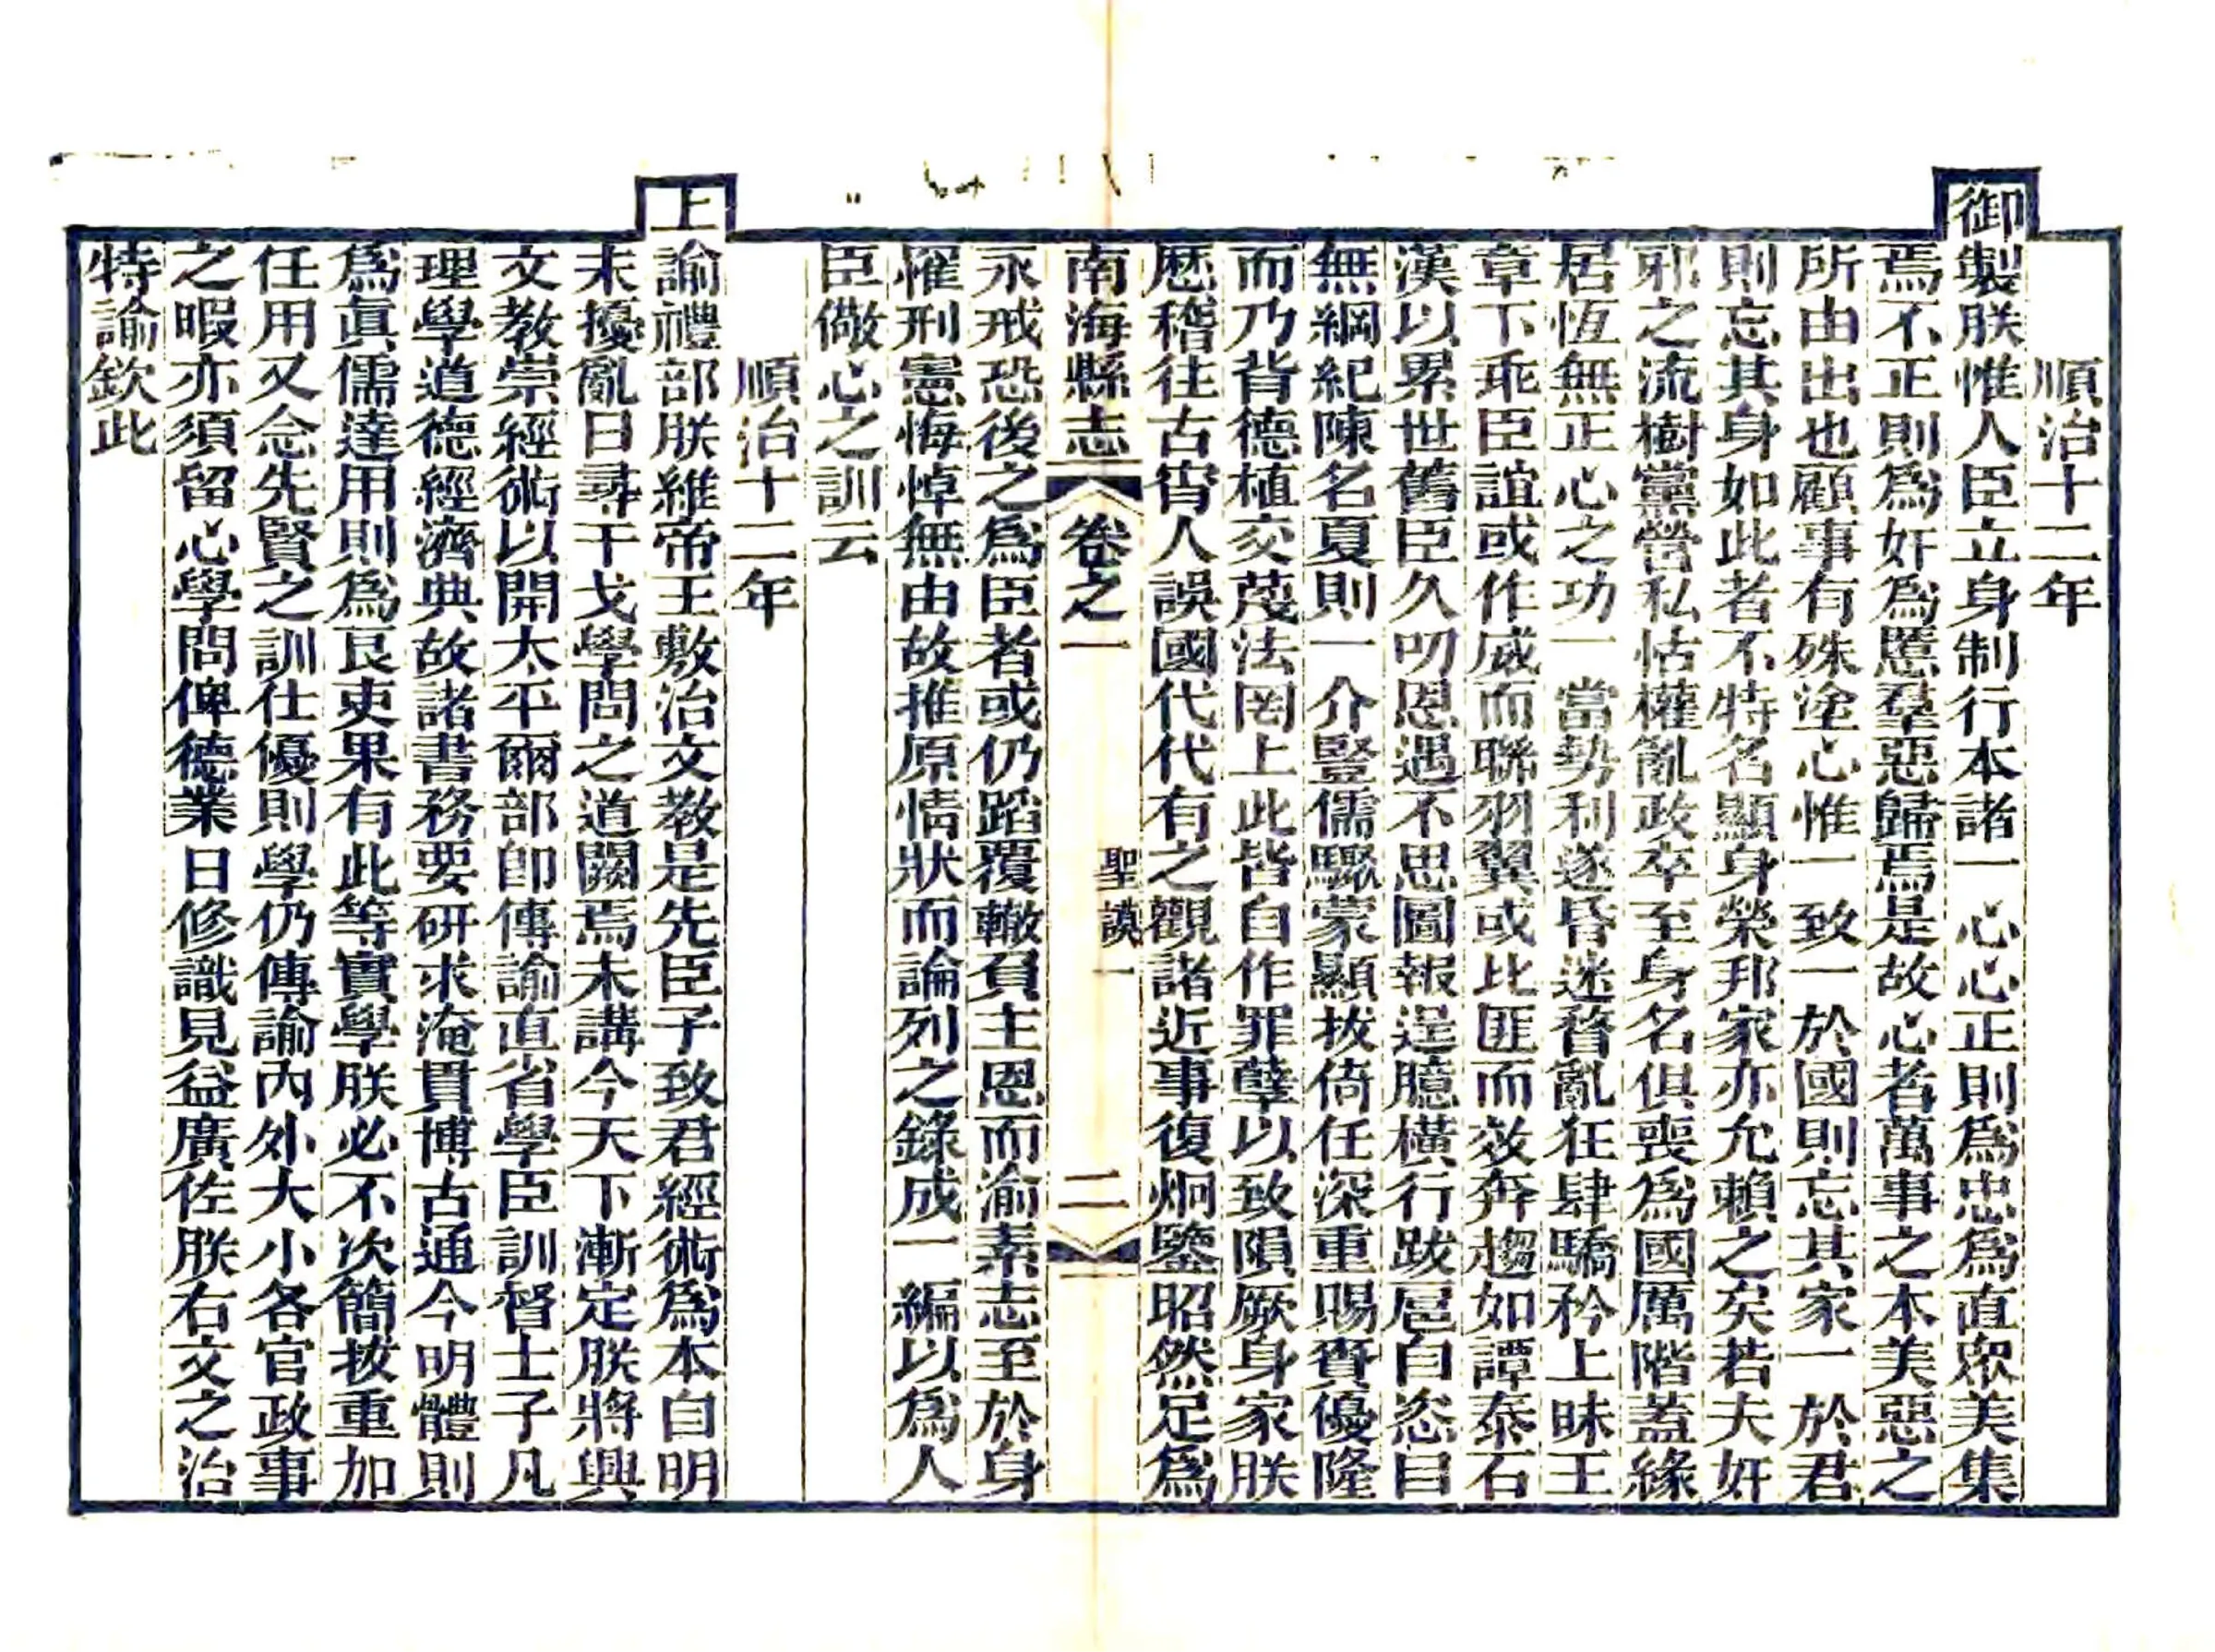 順治十二年
御製朕惟人臣立身制行本諸一心心正則爲忠爲直衆美集
焉不正則爲奸爲慝羣惡歸焉是故心者萬事之本美惡之
所由出也顧事有殊塗心惟一致一於國則忘其家一於君
則忘其身如此者不特名顯身榮邦家亦允賴之矣若夫奸
邪之流樹黨營私怙權亂政卒至身名俱喪爲國厲階蓋緣
居恆無正心之功一當勢利遂昏迷瞀亂狂肆驕矜上昧王
章下乖臣誼或作威而聯羽翼或比匪而效奔趨如譚泰石
漢以累世舊臣久叨恩遇不思圖報逞臆橫行跋扈自恣目
無綱紀陳名夏則一介豎儒驟蒙顯拔倚任深重賜賚優隆
而乃背德植交蔑法罔上此皆自作罪孽以致隕厥身家朕
歴稽往古宵人誤國代代有之觀諸近事復炯鑒昭然足爲
南海縣志
卷之一
聖謨一
二
永戒恐後之爲臣者或仍蹈覆轍負主恩而渝素志至於身
罹刑憲悔悼無由故推原情狀而論列之錄成一編以爲人
臣儆心之訓云
順治十二年
上諭禮部朕維帝王敷治文教是先臣子致君經術爲本自明
末擾亂日尋干戈學問之道闕焉未講今天下漸定朕將興
文教崇經術以開太平爾部卽傳諭直省學臣訓督士子凡
理學道德經濟典故諸書務要研求淹貫博古通今明體則
爲眞儒達用則爲良吏果有此等實學朕必不次簡拔重加
任用又念先賢之訓仕優則學仍傳諭內外大小各官政事
之暇亦須留心學問俾德業日修識見益廣佐朕右文之治
特諭欽此